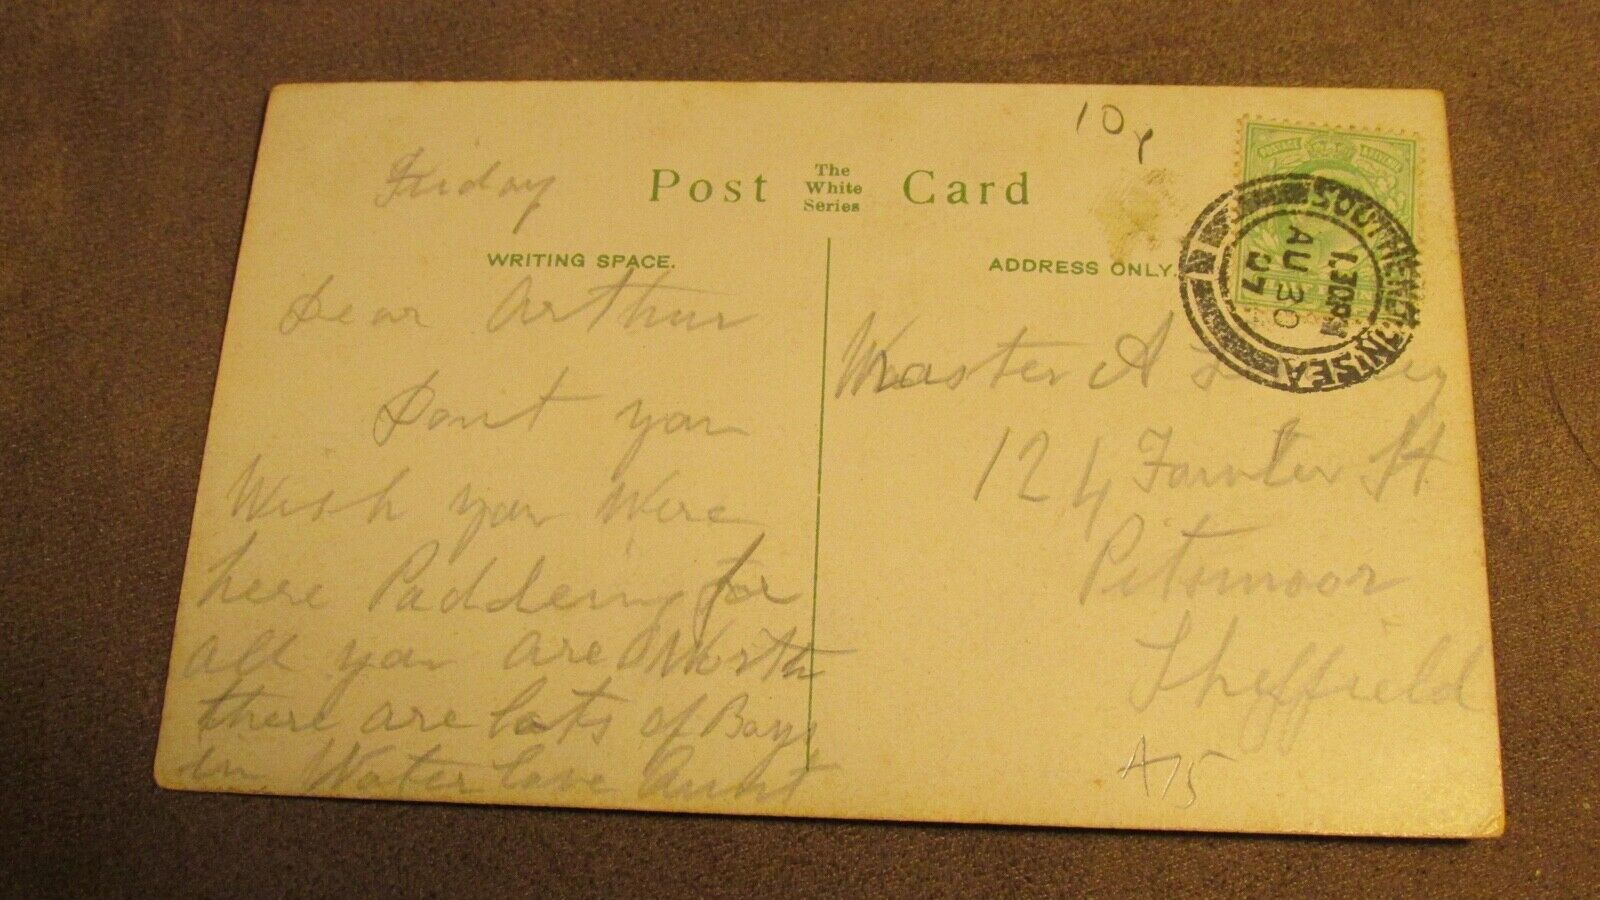 10
Friday
Post The White Series Card
WRITING SPACE.
ADDRESS ONLY.
POSTAGE REVENUE
SOUTHEND-ON-SEA
1.30PM
AU 30
07
Dear Arthur
Dont you
Wish you Were
here Paddeing for
all you are Worth
there are lots of Boys
in Water love Aunt
Master A
124 Fowler St
Pitsmoor
Sheffield
A75